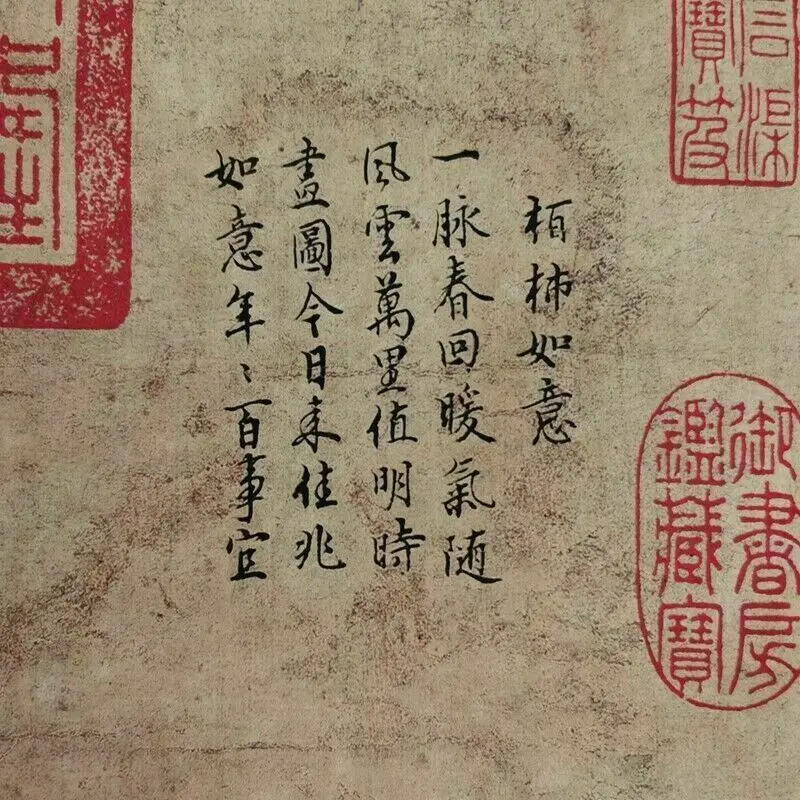 石渠
寶笈
栢柿如意
一脉春回暖氣随
風雲萬里值明時
畫圖今日来佳兆
如意年〻百事宜
御書房
鑑藏寶